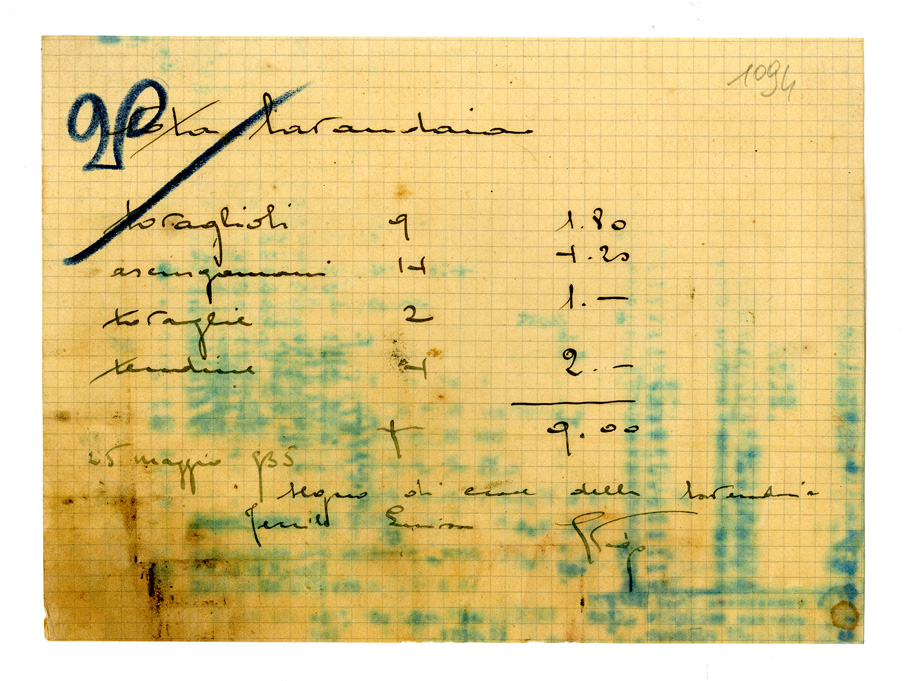 1094
98
nota lavandaia
tovaglioli 9 1.80
asciugamani 14 4.20
tovaglie 2 1.—
tendine 4 2.—
9.00
+
25 maggio 935
segno di croce della lavandaia